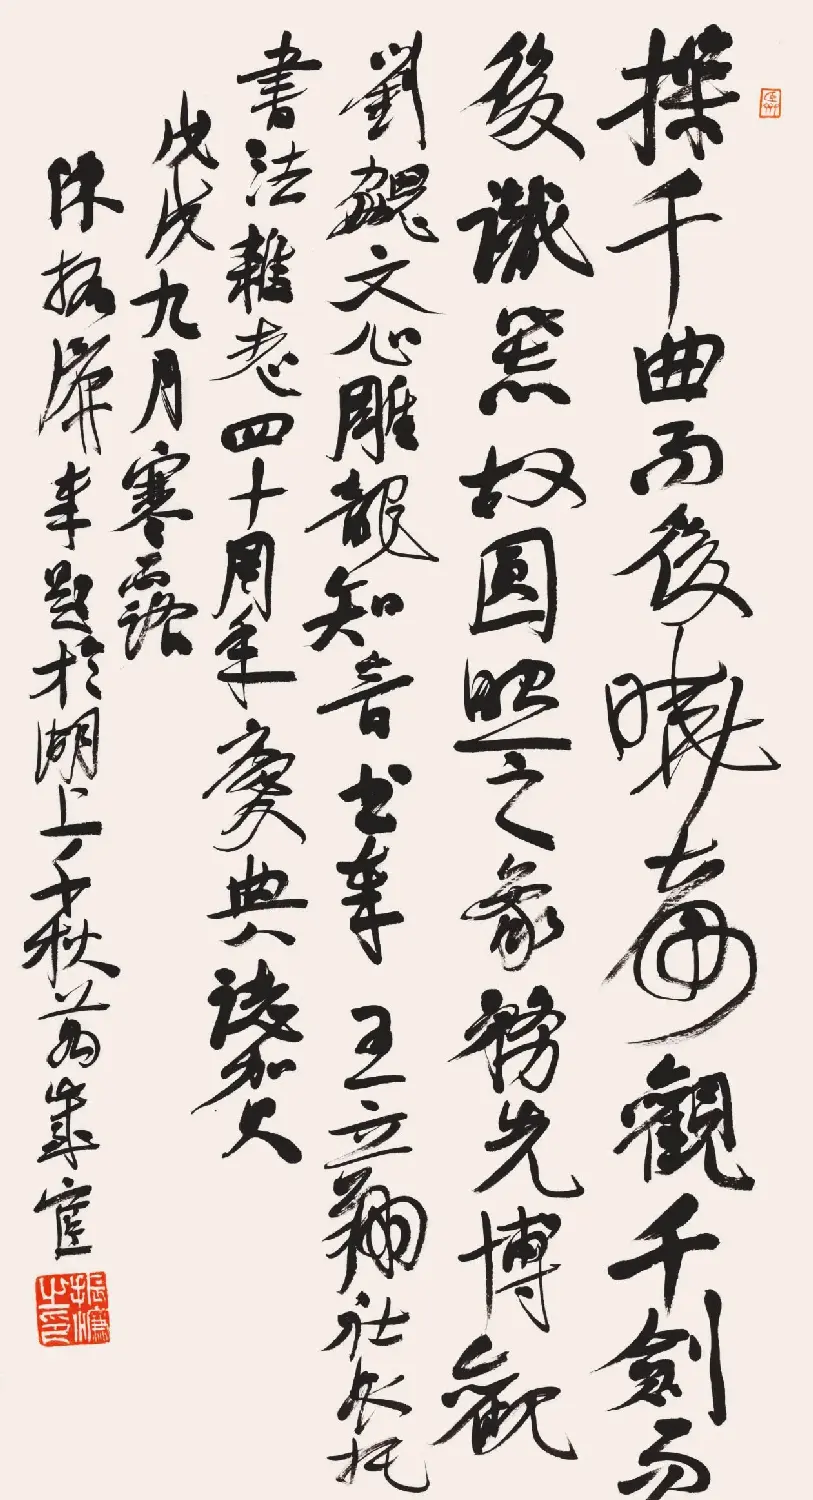 操千曲而後曉聲觀千劍而
後識器故圓照之象務先博觀
劉勰文心雕龍知音書奉 王立翔社長托
書法雜志四十周年慶典誌賀
戊戌九月寒露
陳振濂題於湖上千秋萬歲
振濂之印